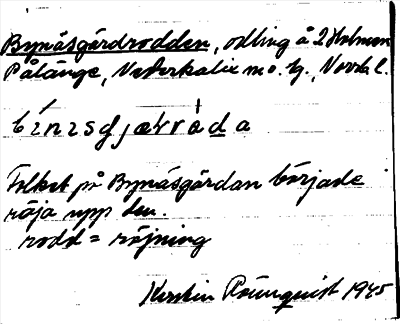 Bynäsgårdrodden, odling å 2 Holmen
Pålänge, Nederkalix m.o. tg., Norrb. l.
býnasgjæ̂ɽrada
Folket på Bynäsgårdan började
röja upp den.
rodd = röjning
Kerstin Rönnquist 1945